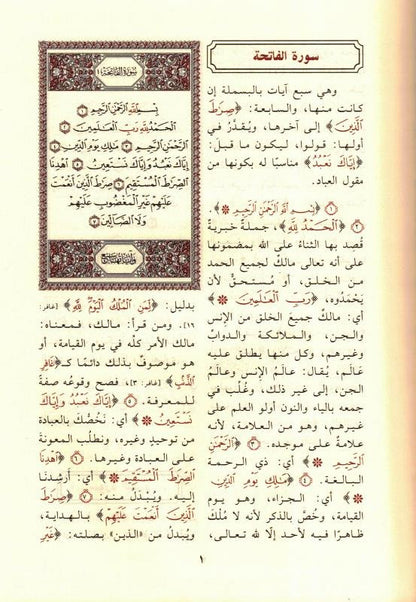 سورة الفاتحة
وهي سبع آيات بالبسملة إن
كانت منها، والسابعة: ﴿صِرَٰطَ
ٱلَّذِينَ﴾ إلى آخرها، ويُقدَّرُ في
أولها: قولوا، ليكون ما قبلَ:
﴿إِيَّاكَ نَعْبُدُ﴾ مناسبًا له بكونها من
مقول العباد.
١ ﴿بِسْمِ ٱللَّهِ ٱلرَّحْمَٰنِ ٱلرَّحِيمِ﴾.
٢ ﴿ٱلْحَمْدُ لِلَّهِ﴾، جملة خبريةٌ
قُصِد بها الثناءُ على الله بمضمونها
على أنه تعالى مالكٌ لجميع الحمد
من الخلق، أو مُستحقٌّ لأن
يَحْمَدوه، ﴿رَبِّ ٱلْعَٰلَمِينَ﴾
أي: مالكُ جميع الخلق من الإنس
والجن، والملائكة والدوابِّ
وغيرهم، وكل منها يطلق عليه
عَالَم، يُقال: عالمُ الإنس وعالَمُ
الجن، إلى غير ذلك، وغُلِّب في
جمعه بالياء والنون أولو العلم على
غيرهم، وهو من العلامة، لأنه
علامةٌ على موجده. ٣ ﴿ٱلرَّحْمَٰنِ
ٱلرَّحِيمِ﴾ أي: ذي الرحمة
البالغة. ٤ ﴿مَٰلِكِ يَوْمِ ٱلدِّينِ
﴾ أي: الجزاء، وهو يوم
القيامة، وخُصَّ بالذكر لأنه لا مُلكَ
ظاهرًا فيه لأحد إلَّا لله تعالى،
سورة الفاتحة
بِسْمِ ٱللَّهِ ٱلرَّحْمَٰنِ ٱلرَّحِيمِ ١
ٱلْحَمْدُ لِلَّهِ رَبِّ ٱلْعَٰلَمِينَ ٢
ٱلرَّحْمَٰنِ ٱلرَّحِيمِ ٣ مَٰلِكِ يَوْمِ ٱلدِّينِ ٤
إِيَّاكَ نَعْبُدُ وَإِيَّاكَ نَسْتَعِينُ ٥ ٱهْدِنَا
ٱلصِّرَٰطَ ٱلْمُسْتَقِيمَ ٦ صِرَٰطَ ٱلَّذِينَ أَنْعَمْتَ
عَلَيْهِمْ غَيْرِ ٱلْمَغْضُوبِ عَلَيْهِمْ
وَلَا ٱلضَّآلِّينَ ٧
بدليل: ﴿لِّمَنِ ٱلْمُلْكُ ٱلْيَوْمَ لِلَّهِ﴾ [غافر:
١٦]. ومن قرأ: مالك، فمعناه:
مالك الأمر كلّه في يوم القيامة، أو
هو موصوفٌ بذلك دائمًا كـ ﴿غَافِرِ
ٱلذَّنۢبِ﴾ [غافر: ٣]، فصح وقوعُه صفةً
للمعرفة. ٥ ﴿إِيَّاكَ نَعْبُدُ وَإِيَّاكَ
نَسْتَعِينُ﴾ أي: نَخُصُّكَ بالعبادة
من توحيدٍ وغيره، ونطلُب المعونةَ
على العبادة وغيرها. ٦ ﴿ٱهْدِنَا
ٱلصِّرَٰطَ ٱلْمُسْتَقِيمَ﴾ أي: أَرشِدْنا
إليه. ويُبدَلُ منه: ٧ ﴿صِرَٰطَ
ٱلَّذِينَ أَنْعَمْتَ عَلَيْهِمْ﴾ بالهداية،
ويُبدل من «الذين» بصلته: ﴿غَيْرِ
١